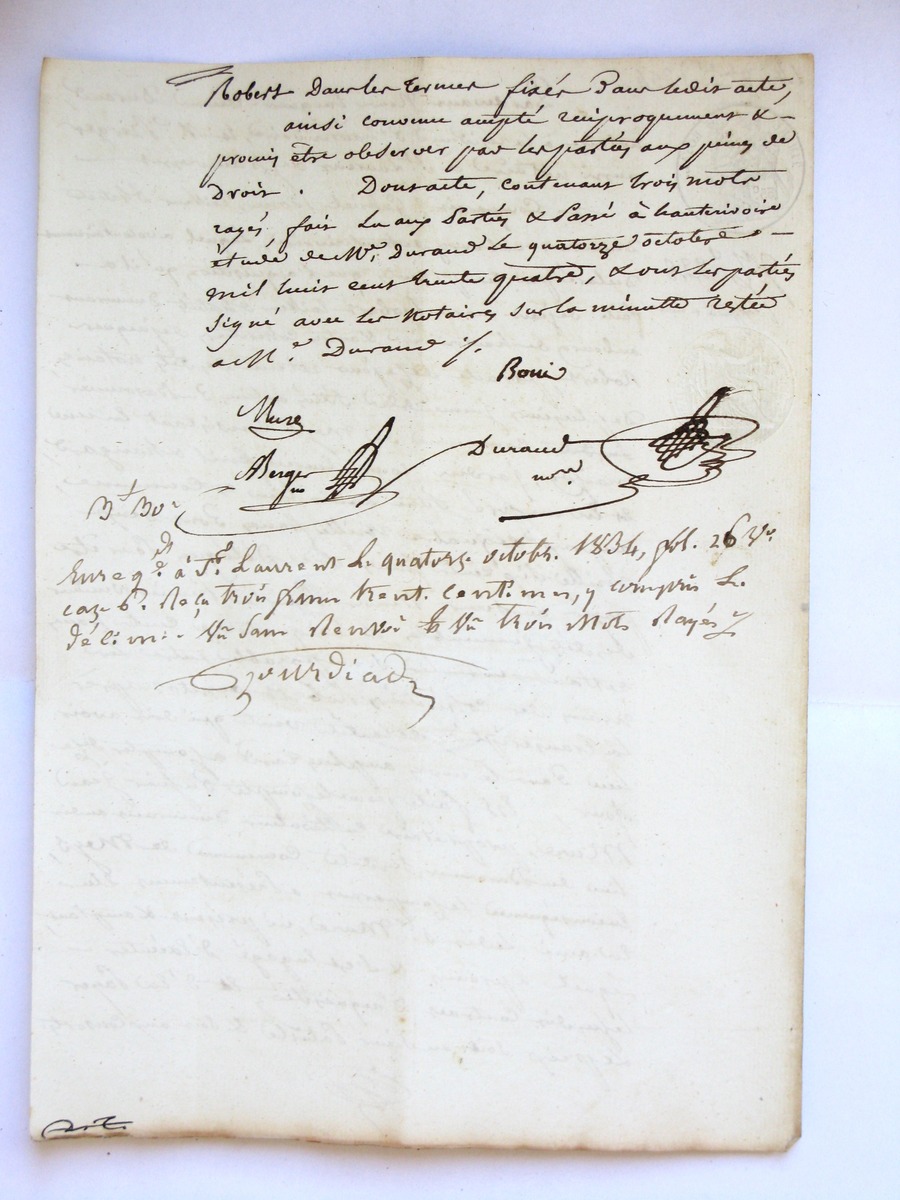 Robert Dans les termes fixés Dans ledit acte,
ainsi convenu accepté réciproquement &
promis être observer par les parties aux peines de
Droit . Dont acte, contenant trois mots
rayés, fait lu aux Parties & Passé à hauterivoire
étude de Me. Durand le quatorze octobre
mil huit cent trente quatre, & ont les parties
signé avec les Notaires sur la minutte restée
a Me. Durand ./.
Mure
Berger
Durand
nore.
Enregé. à St. Laurent le quatorze octobr. 1834, fol. 26 vo.
caze 6e. Reçu trois francs trent. centimes, y compris le
décime. Sans Renvoi trois Mots Rayés